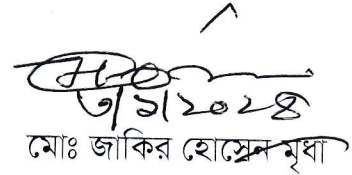 ৩/১/২০২৪
মোঃ জাকির হোসেন মৃধা